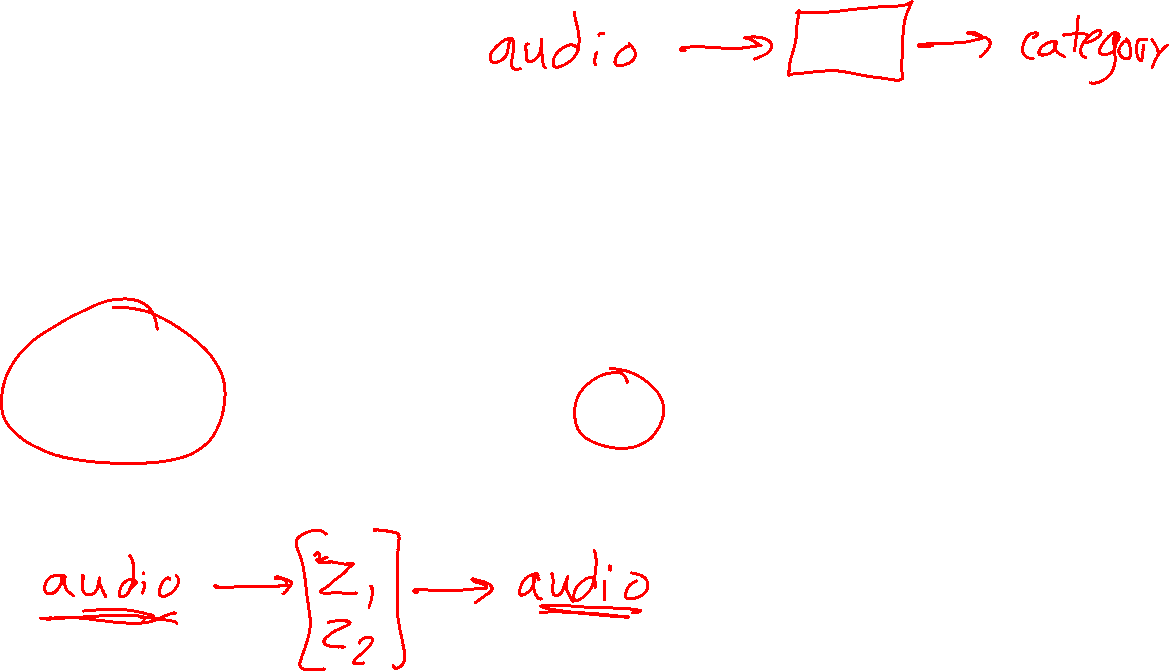 audio → → category
audio → [z₁ → audio
z₂]